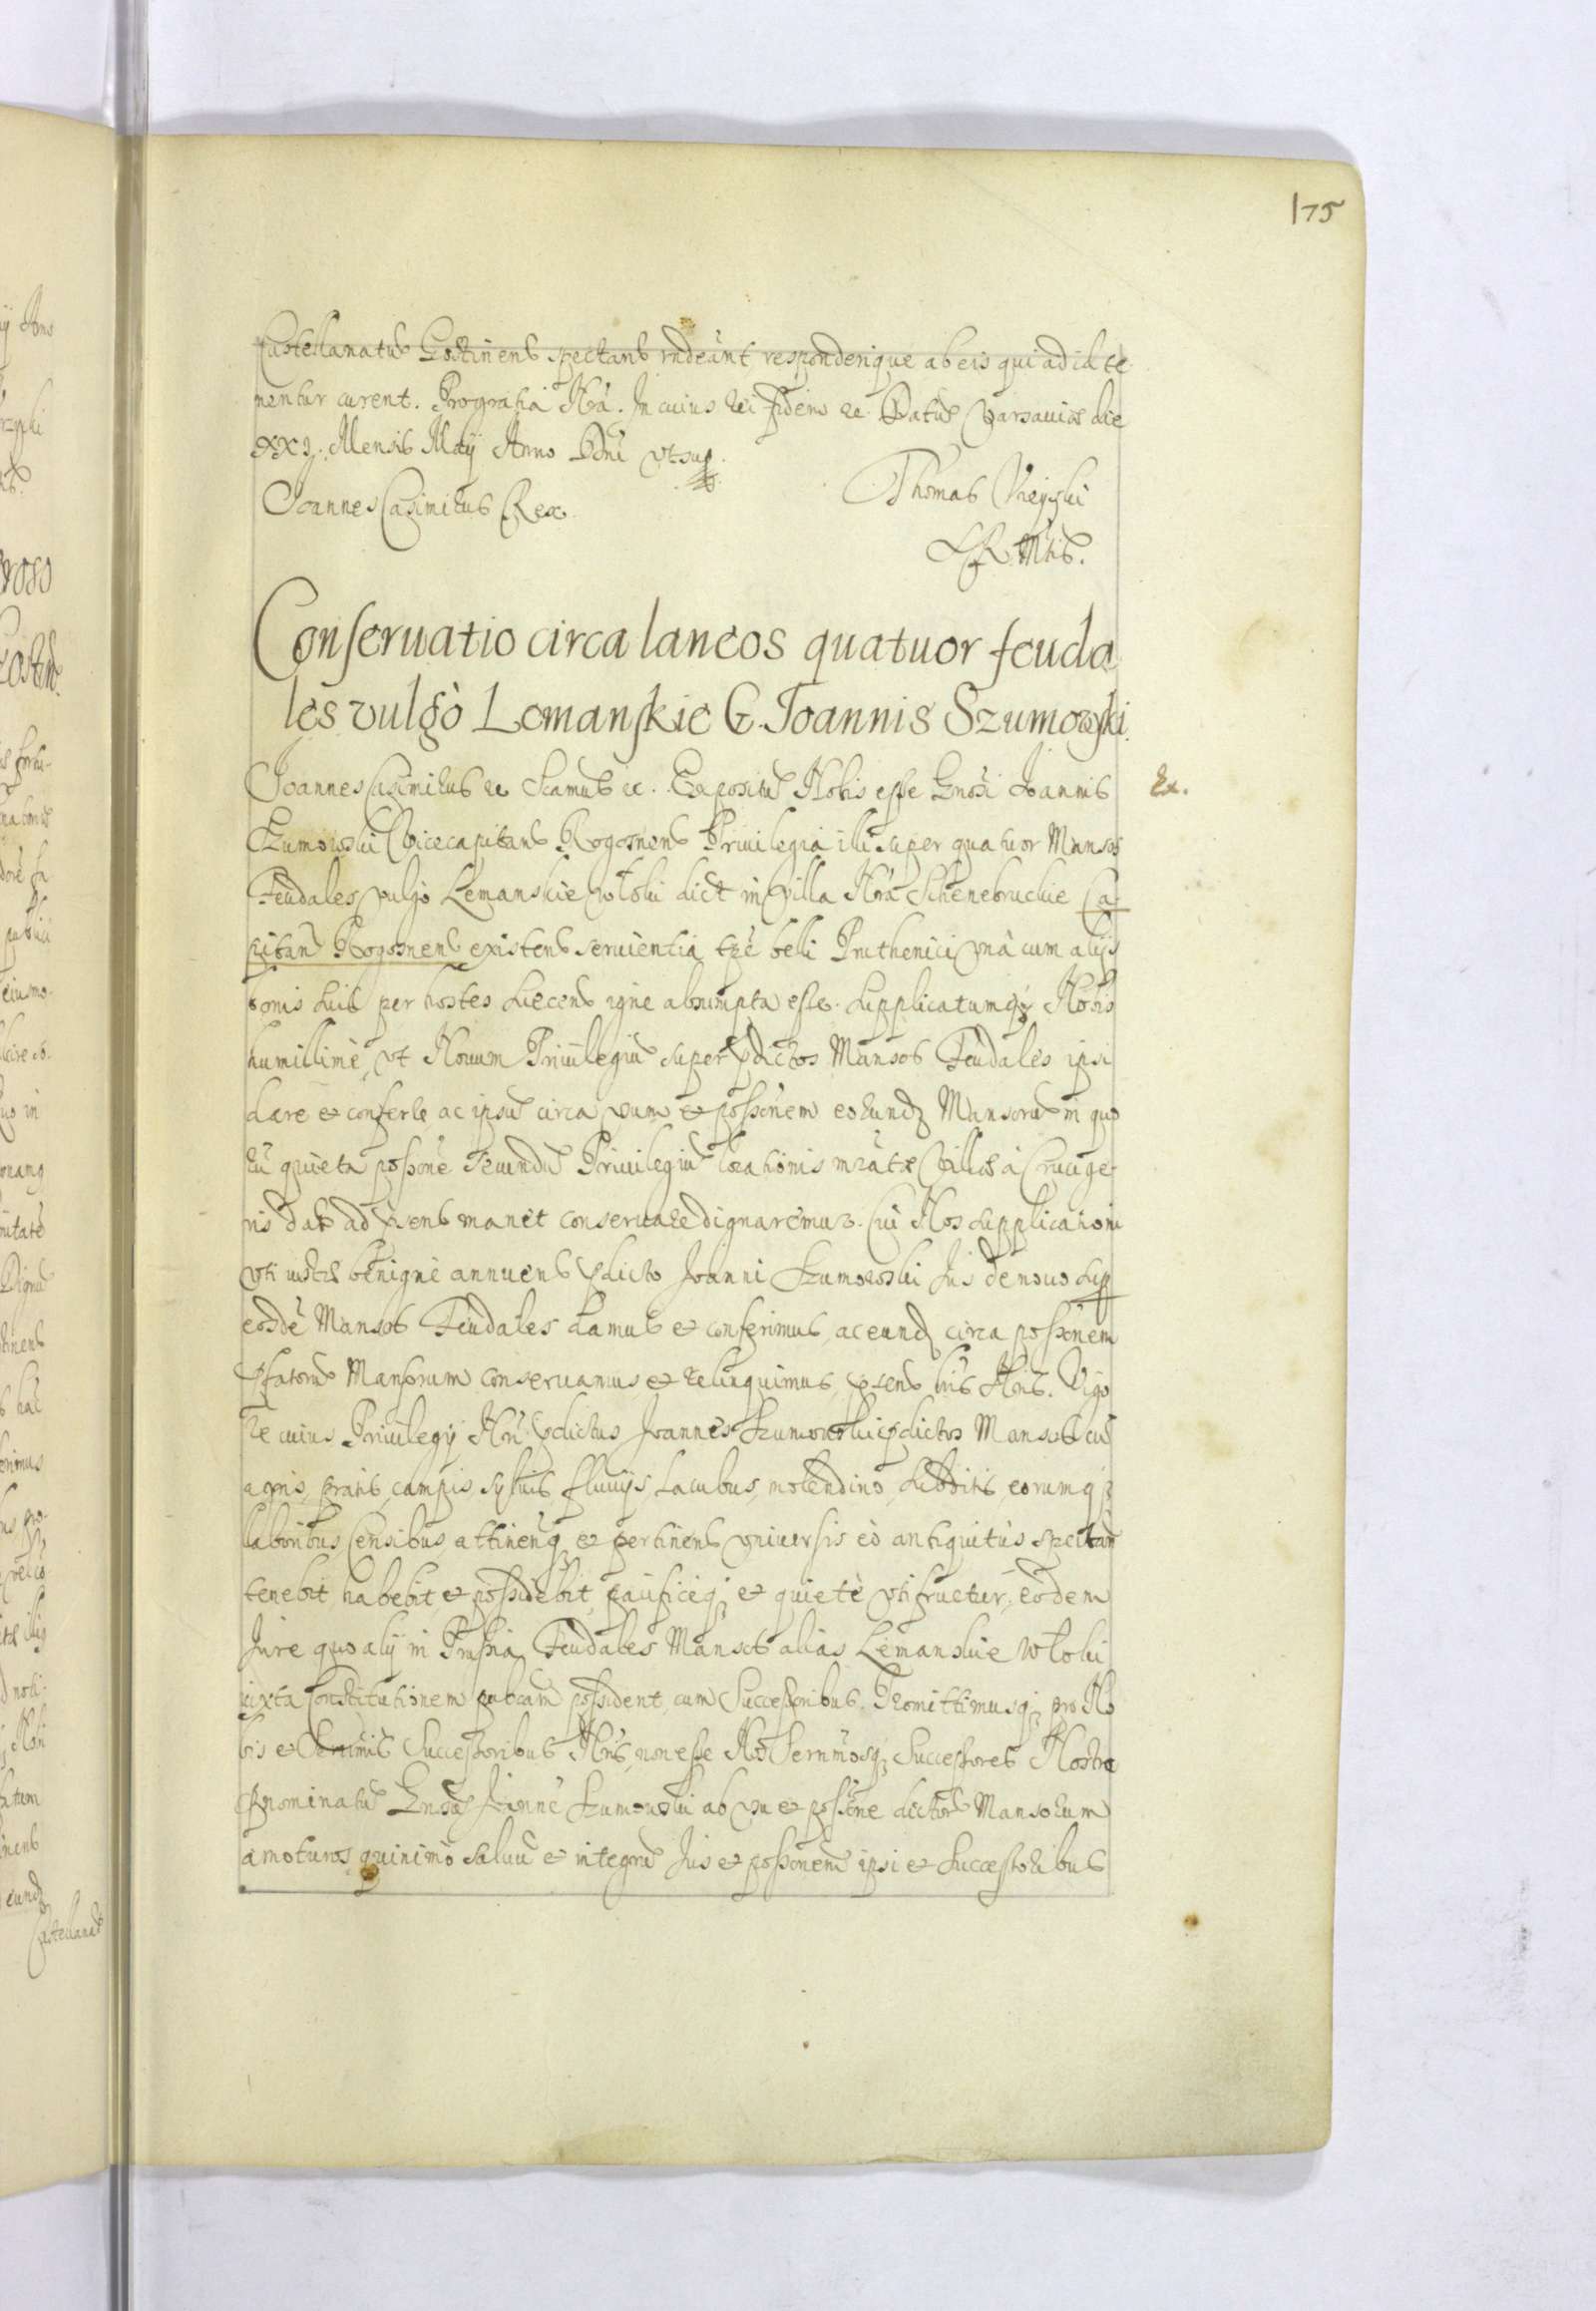 175
Castellanatus Gostinens spectans rndeant responderique ab eis qui ad id te
nentur curent. Pro gratia Nra. In cuius Rei fidem &c. Datus Varsaviae die
XXI. Mensis Maij Anno Dni vt sup.
Joannes Casimirus Rex. Thomas Vieyski
S R Mtis.
Conseruatio circa laneos quatuor feuda
les vulgò Lemanskie G. Joannis Szumowski.
Joannes Casimirus &c Scamus &c. Expositu Nobis esse Gnosi Joannis Ex.
Szumowski Vicecapitans Rogosnens Priuilegia illi super quatuor Mansos
Feudales vulgo Lemanskie Wloki dict in Villa Nra Schenebruckie Ca
pitans Rogosnens existens seruientia tpe belli Pruthenici vnà cum alijs
bonis suis per hostes Suecens igne absumpta esse. Supplicatumq Nobis
humillimè, vt Nouum Priuilegiu super pdictos Mansos Feudales ipsi
dare et conferre ac ipsu circa vsum et possonem eorundq Mansoru in quo
ru quieta possone secundu Priuilegiu locationis mratae Villae à Cruige
ris dat ad psens manet conseruare dignaremur. Cui Nos supplicationi
vti iustae benignè annuens pdicto Joanni Szumowski Jus denouo sup
eosdè Mansos Feudales damus et conferimus, ac eund circa possonem
pfatoru Mansorum conseruamus et relinquimus, psens lris Nris. Vigo
re cuius Priuilegij Nri pdictus Joannes Szumowski pdictos Mansos cu
agris, pratis, campis, syluis, fluuijs, Lacubus, molendino, Subditis, eorumq
laboribus Censibus attinenq et pertinens vniuersis eò antiquitùs spectan
tenebit habebit, et possidebit, pacificèq et quietè vti fruetur, eodem
Jure quo alij in Prussia Feudales Mansos alias Lemanskie Wloki
iuxta Constitutionem pubcam possident cum Successoribus. Promittimusq pro No
bis et Sermis Successoribus Nris, non esse Nos Sermosq Successores Nostros
pnominatu Gnosu Joanne Szumowski ab vsu et possone dictoru Mansorum
amoturos, quinimò saluu et integru Jus et possonem ipsi et Successoribus